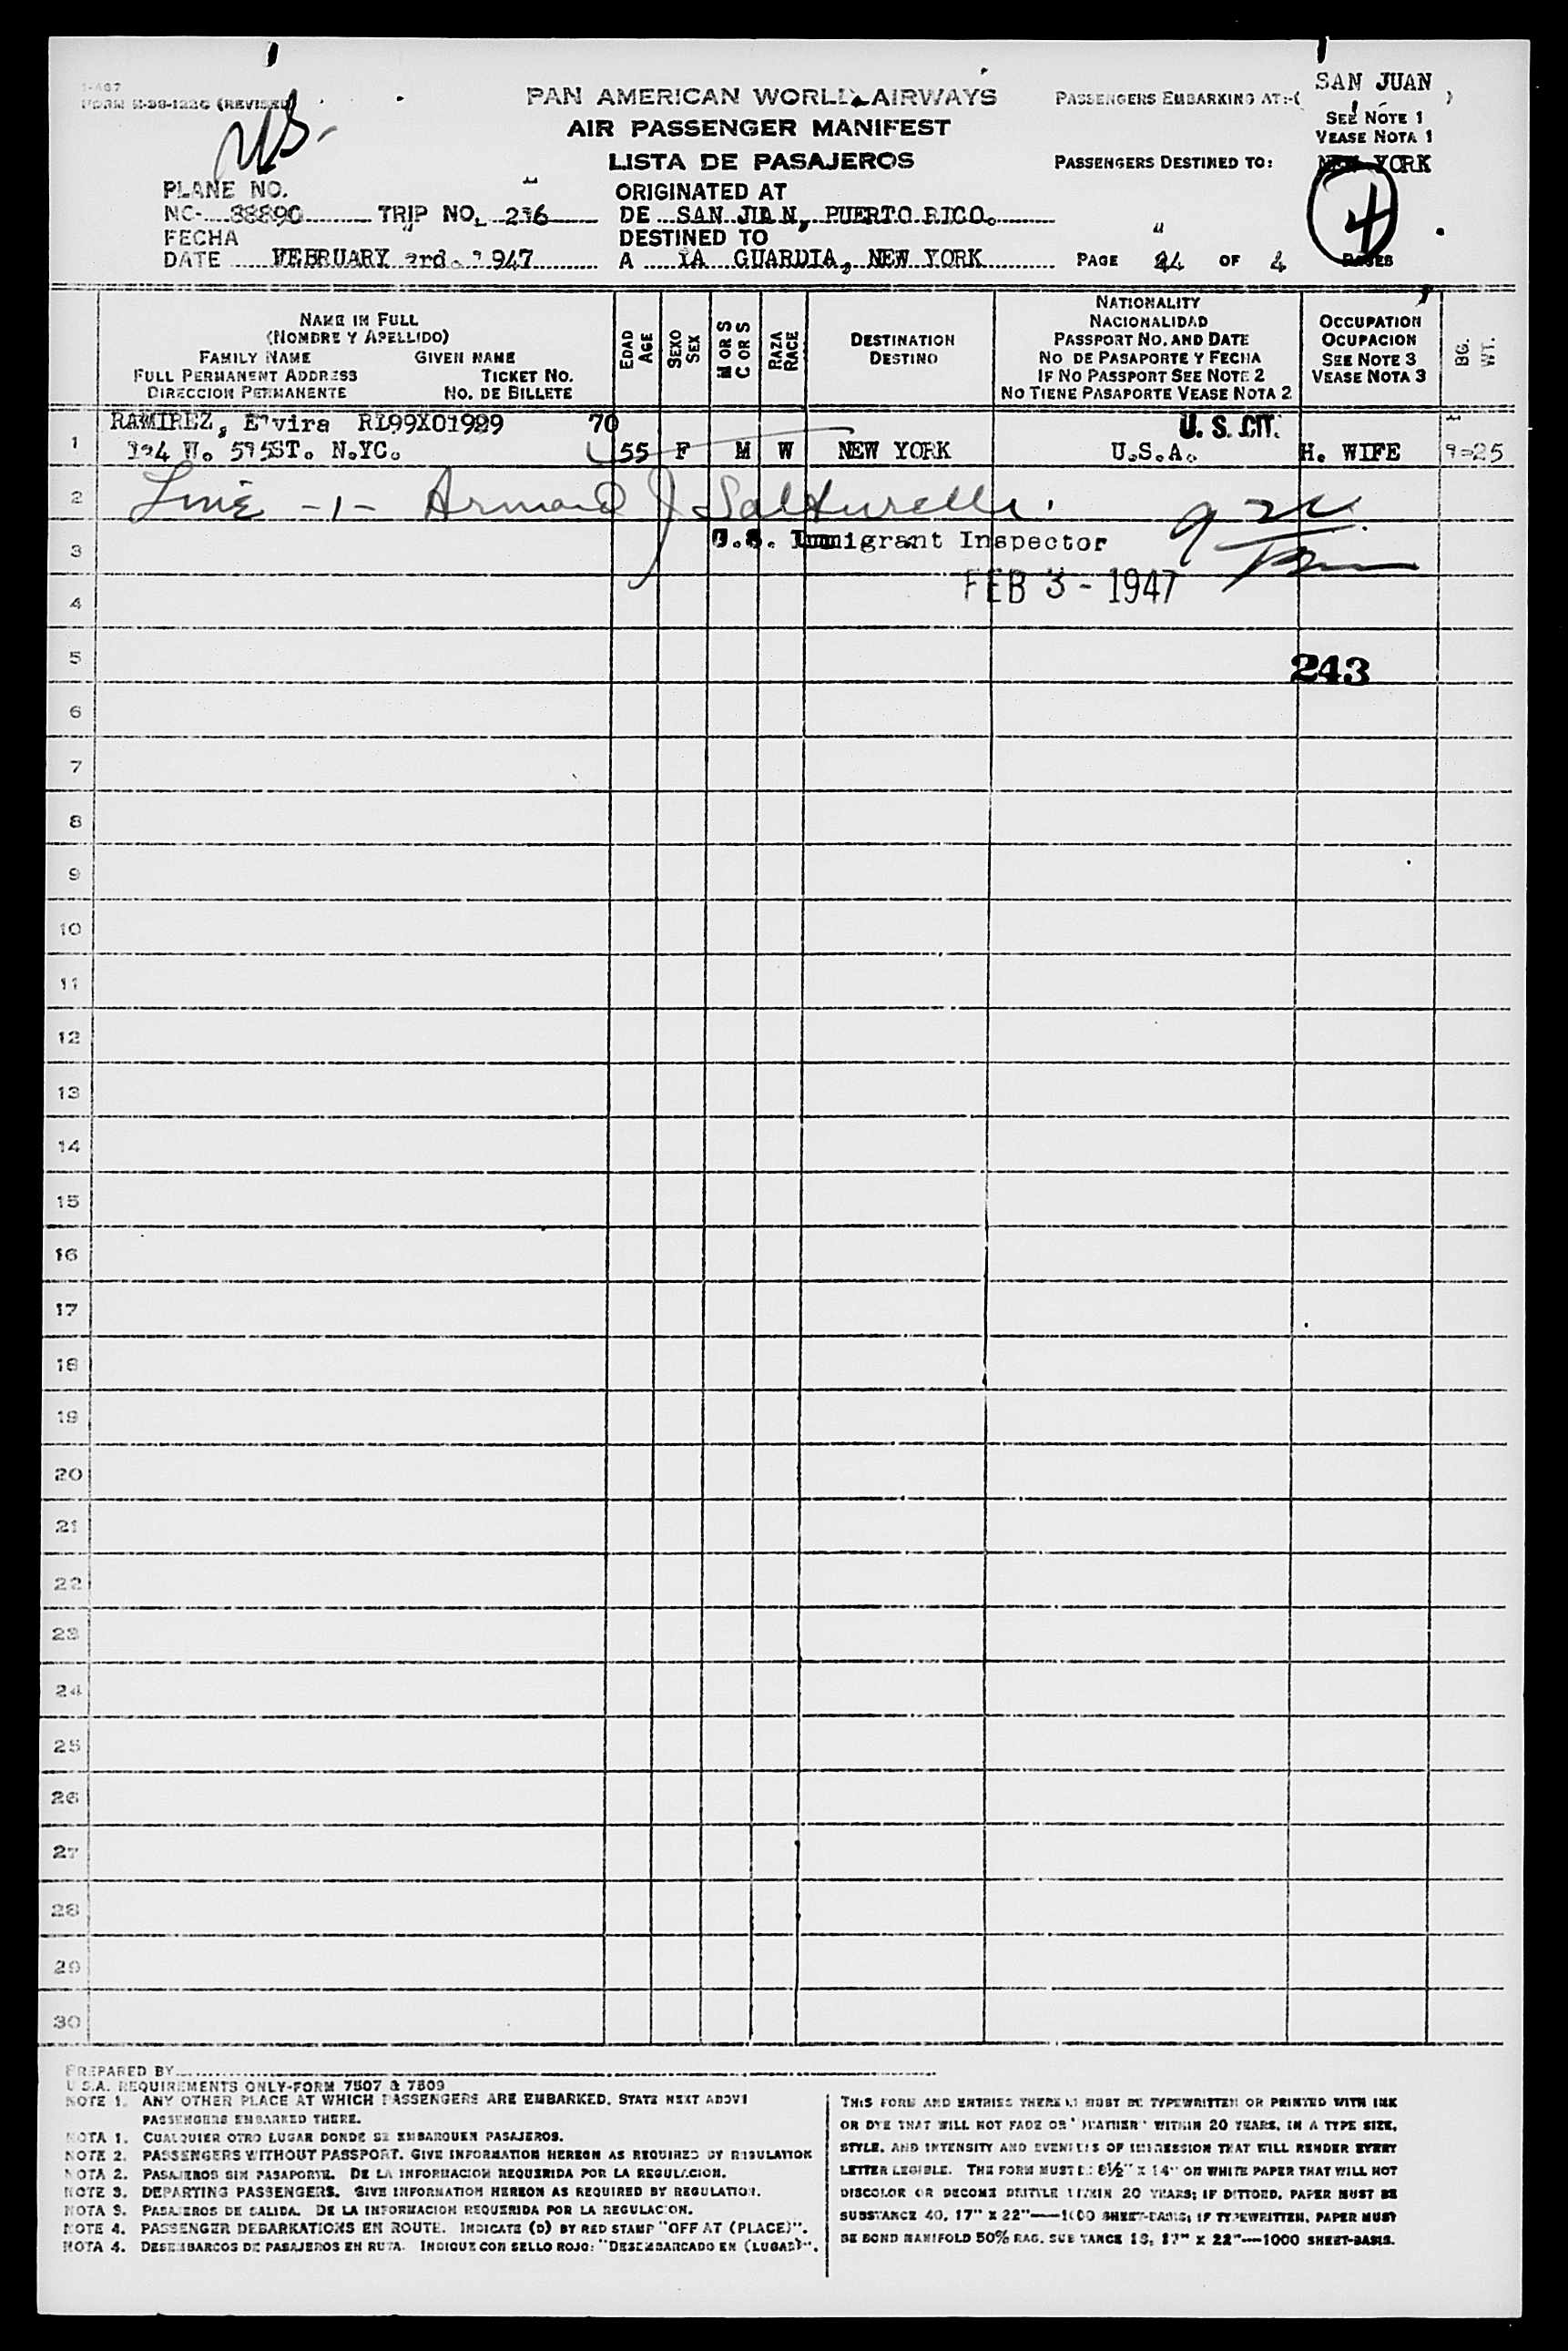 FORM M-98-122G (REVISED)
PAN AMERICAN WORLD AIRWAYS
AIR PASSENGER MANIFEST
LISTA DE PASAJEROS
PASSENGERS EMBARKING AT:-( SAN JUAN )
SEE NOTE 1
VEASE NOTA 1
PASSENGERS DESTINED TO: NEW YORK
4
PLANE NO.
NC- 88890 TRIP NO. 216
ORIGINATED AT
DE SAN JUAN, PUERTO RICO.
FECHA
DATE FEBRUARY 3rd. 1947
DESTINED TO
A LA GUARDIA, NEW YORK
PAGE 4 OF 4 PAGES
NAME IN FULL
(NOMBRE Y APELLIDO)
FAMILY NAME GIVEN NAME
FULL PERMANENT ADDRESS TICKET NO.
DIRECCION PERMANENTE NO. DE BILLETE
EDAD
AGE
SEXO
SEX
M OR S
C OR S
RAZA
RACE
DESTINATION
DESTINO
NATIONALITY
NACIONALIDAD
PASSPORT NO. AND DATE
NO DE PASAPORTE Y FECHA
IF NO PASSPORT SEE NOTE 2
NO TIENE PASAPORTE VEASE NOTA 2
OCCUPATION
OCUPACION
SEE NOTE 3
VEASE NOTA 3
BG.
WT.
RAMIREZ, Elvira RI99X01989 70 U. S. CIT.
1 W. ST. N.YC. 55 F M W NEW YORK U.S.A. H. WIFE 25
2 Line -1- Armand J Salturelli
3 U.S. Immigrant Inspector
FEB 3 - 1947
4
5 243
6
7
8
9
10
11
12
13
14
15
16
17
18
19
20
21
22
23
24
25
26
27
28
29
30
PREPARED BY
U.S.A. REQUIREMENTS ONLY-FORM 7507 & 7509
NOTE 1. ANY OTHER PLACE AT WHICH PASSENGERS ARE EMBARKED. STATE NEXT ABOVE
PASSENGERS EMBARKED THERE.
NOTA 1. CUALQUIER OTRO LUGAR DONDE SE EMBARQUEN PASAJEROS.
NOTE 2. PASSENGERS WITHOUT PASSPORT. GIVE INFORMATION HEREON AS REQUIRED BY REGULATION
NOTA 2. PASAJEROS SIN PASAPORTE. DE LA INFORMACION REQUERIDA POR LA REGULACION.
NOTE 3. DEPARTING PASSENGERS. GIVE INFORMATION HEREON AS REQUIRED BY REGULATION.
NOTA 3. PASAJEROS DE SALIDA. DE LA INFORMACION REQUERIDA POR LA REGULACION.
NOTE 4. PASSENGER DEBARKATIONS EN ROUTE. INDICATE (D) BY RED STAMP "OFF AT (PLACE)".
NOTA 4. DESEMBARCOS DE PASAJEROS EN RUTA. INDIQUE CON SELLO ROJO: "DESEMBARCADO EN (LUGAR)".
THIS FORM AND ENTRIES THEREON MUST BE TYPEWRITTEN OR PRINTED WITH INK
OR DYE THAT WILL NOT FADE OR "FEATHER" WITHIN 20 YEARS, IN A TYPE SIZE,
STYLE, AND INTENSITY AND EVENNESS OF IMPRESSION THAT WILL RENDER EVERY
LETTER LEGIBLE. THE FORM MUST BE 8½" X 14" ON WHITE PAPER THAT WILL NOT
DISCOLOR OR BECOME BRITTLE WITHIN 20 YEARS; IF DITTOED, PAPER MUST BE
SUBSTANCE 40, 17" X 22"—1000 SHEET-BASIS; IF TYPEWRITTEN, PAPER MUST
BE BOND MANIFOLD 50% RAG, SUBSTANCE 18, 17" X 22"—1000 SHEET-BASIS.